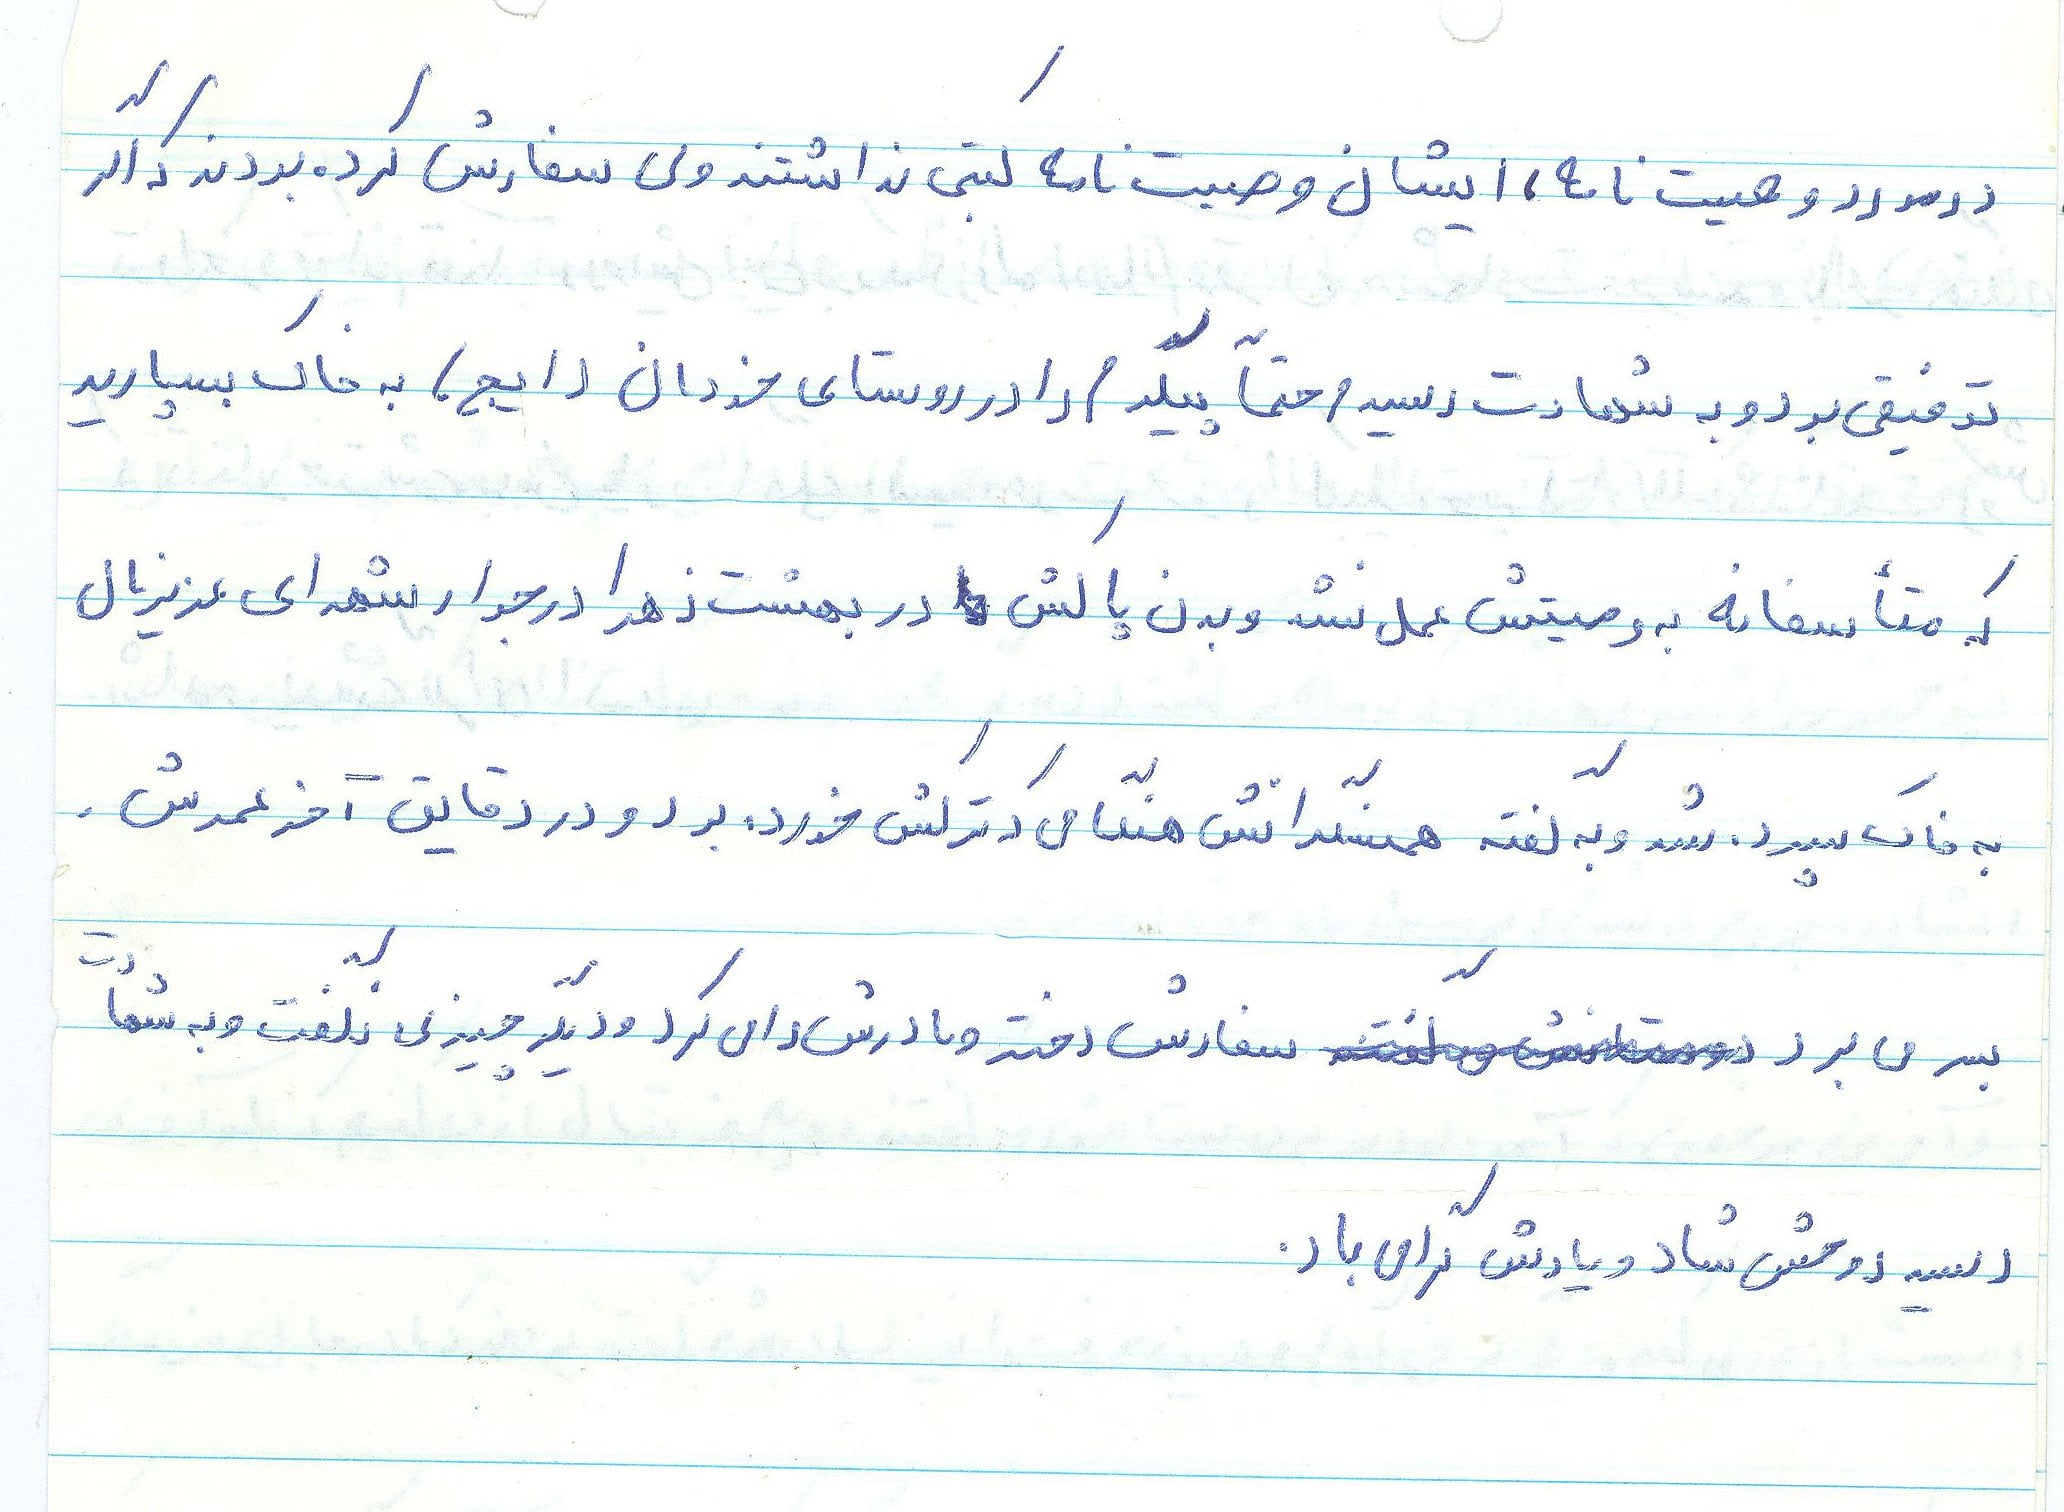 در مورد وصیت نامه، ایشان وصیت نامه کتبی نداشتند ولی سفارش کرده بودند که اگر
توفیقی بود و به شهادت رسیدم حتماً پیکرم را در روستای خردال (ایج) به خاک بسپارید
که متأسفانه به وصیتش عمل نشد و بدن پاکش در بهشت زهرا در جوار شهدای عزیزمان
به خاک سپرده شد و به گفته همسنگرانش هنگامی که ترکش خورده بود و در دقایق آخر عمرش
بسر می برد سفارش دختر و مادرش را می کرد و دیگر چیزی نگفت و به شهادت
رسید روحش شاد و یادش گرامی باد.